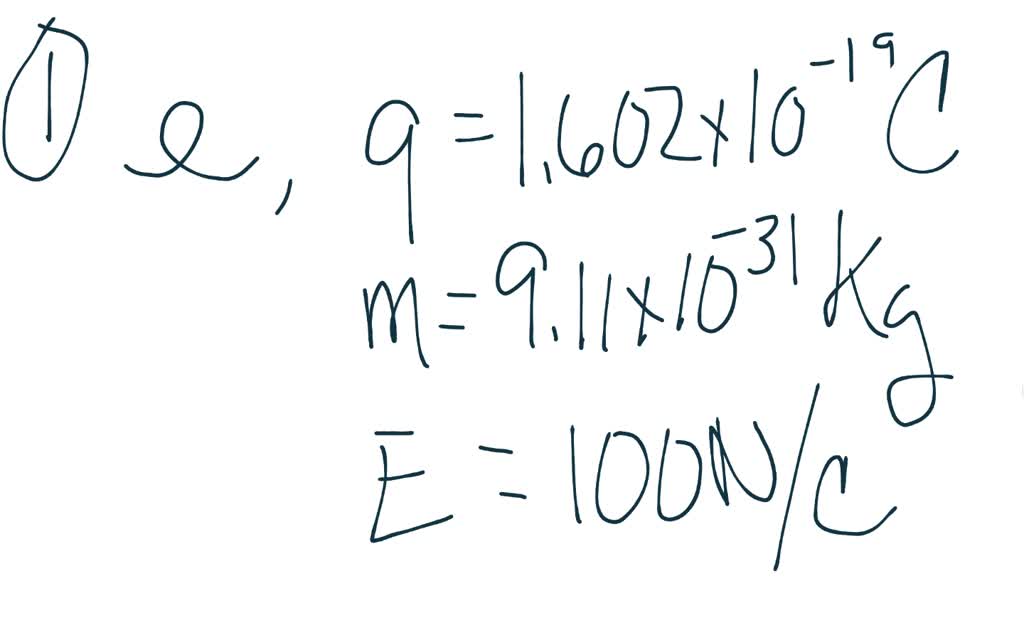 ① e, q = 1.602x10⁻¹⁹ C
m = 9.11x10⁻³¹ Kg
E = 100N/C